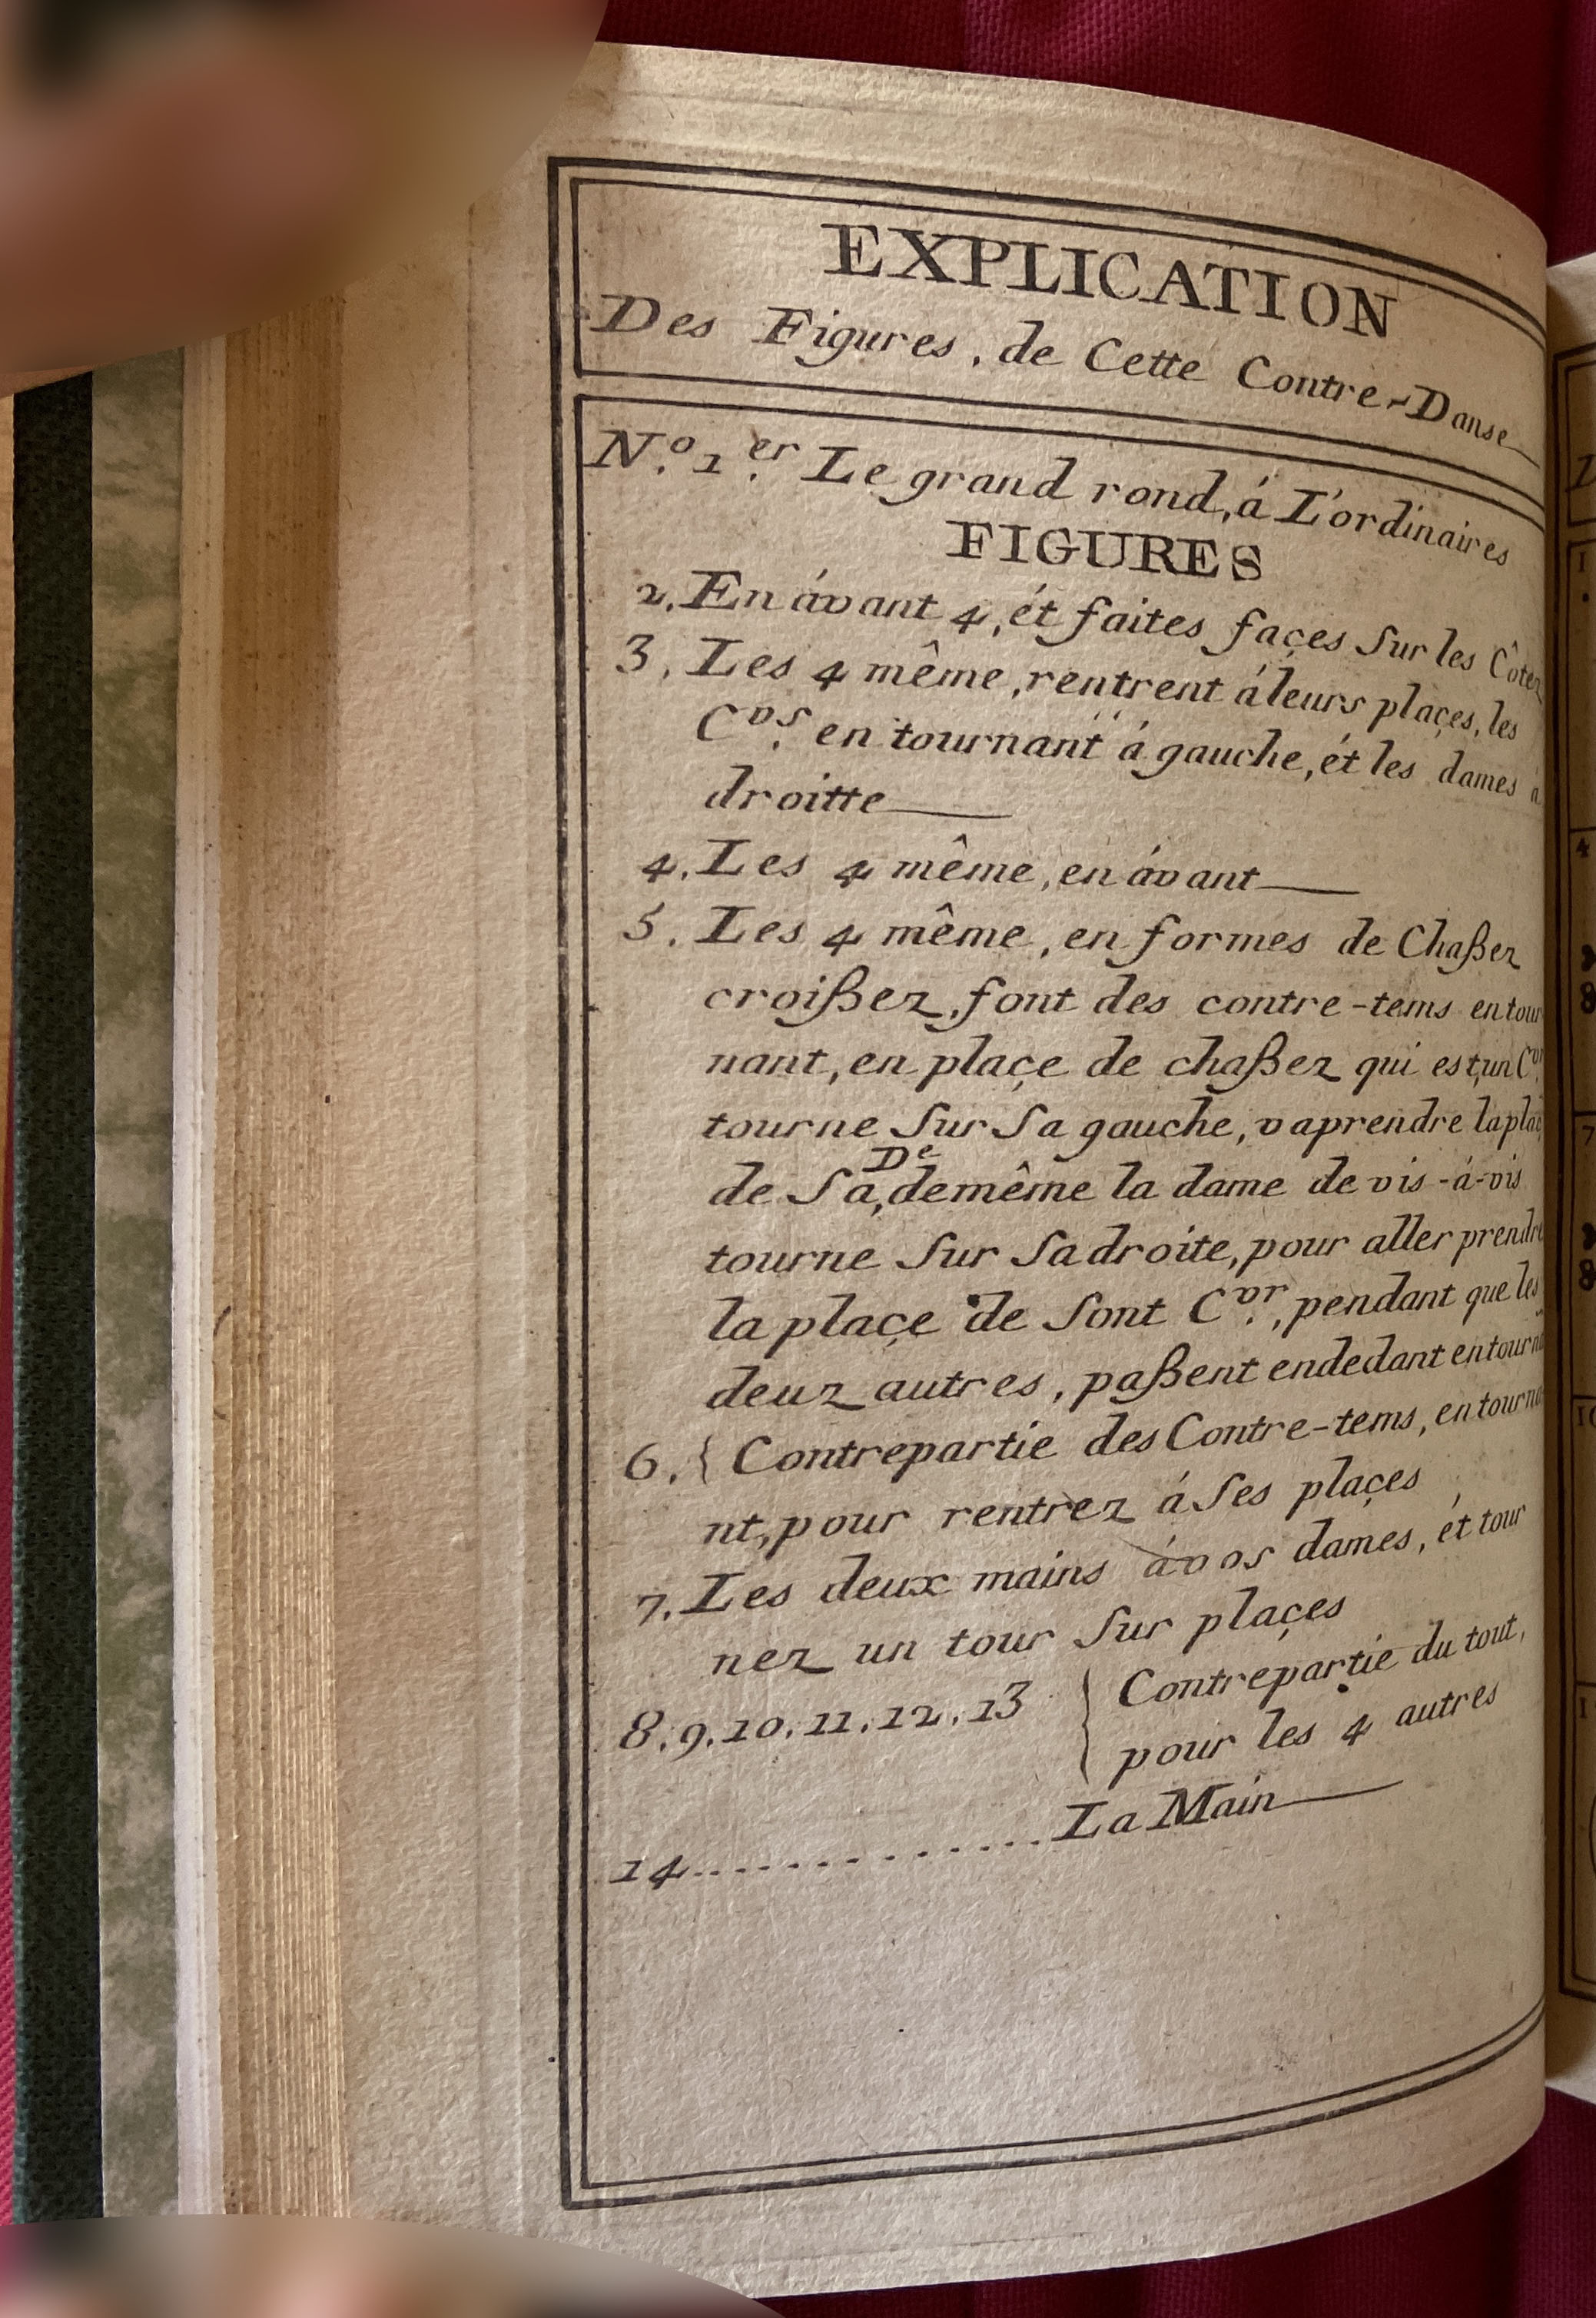 EXPLICATION
Des Figures, de Cette Contre-Danse
N.º 1.er Le grand rond, á L'ordinaires
FIGURES
2. En ávant 4, ét faites façes sur les Côtez
3. Les 4 même, rentrent á leurs plaçes, les
C.vs en tournant á gauche, ét les dames à
droitte
4. Les 4 même, en ávant
5. Les 4 même, en formes de Chaßez
croißez, font des contre-tems en tour
nant, en plaçe de chaßez qui est, un C.vr
tourne sur sa gauche, va prendre la
de sa De, de même la dame de vis-á-vis
tourne sur sa droite, pour aller prendre
la plaçe de sont C.vr, pendant que les
deuz autres, paßent endedant en
6. { Contrepartie des Contre-tems, en tourna
nt, pour rentrez á ses plaçes
7. Les deux mains á vos dames, ét tour
nez un tour sur plaçes
8. 9. 10. 11. 12. 13 { Contrepartie du tout,
pour les 4 autres
14.............. La Main